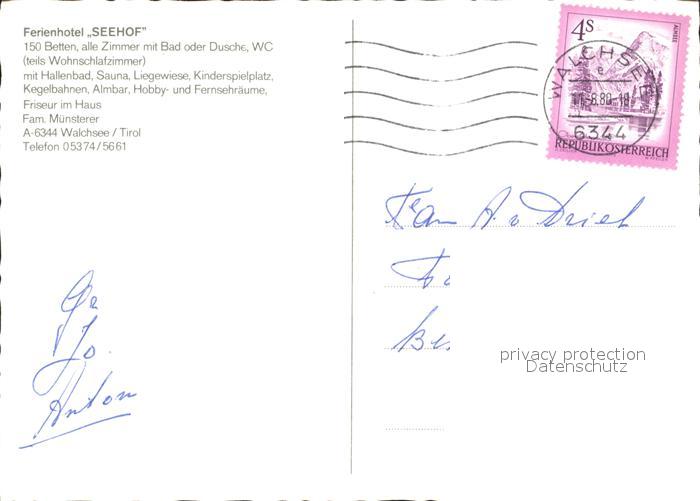 Ferienhotel „SEEHOF"
150 Betten, alle Zimmer mit Bad oder Dusche, WC
(teils Wohnschlafzimmer)
mit Hallenbad, Sauna, Liegewiese, Kinderspielplatz,
Kegelbahnen, Almbar, Hobby- und Fernsehräume,
Friseur im Haus
Fam. Münsterer
A-6344 Walchsee / Tirol
Telefon 05374/5661
4S
ALMSEE
WALCHSEE
e
6344
REPUBLIK ÖSTERREICH
Fam A. v Driel
Jo
Anton
privacy protection
Datenschutz